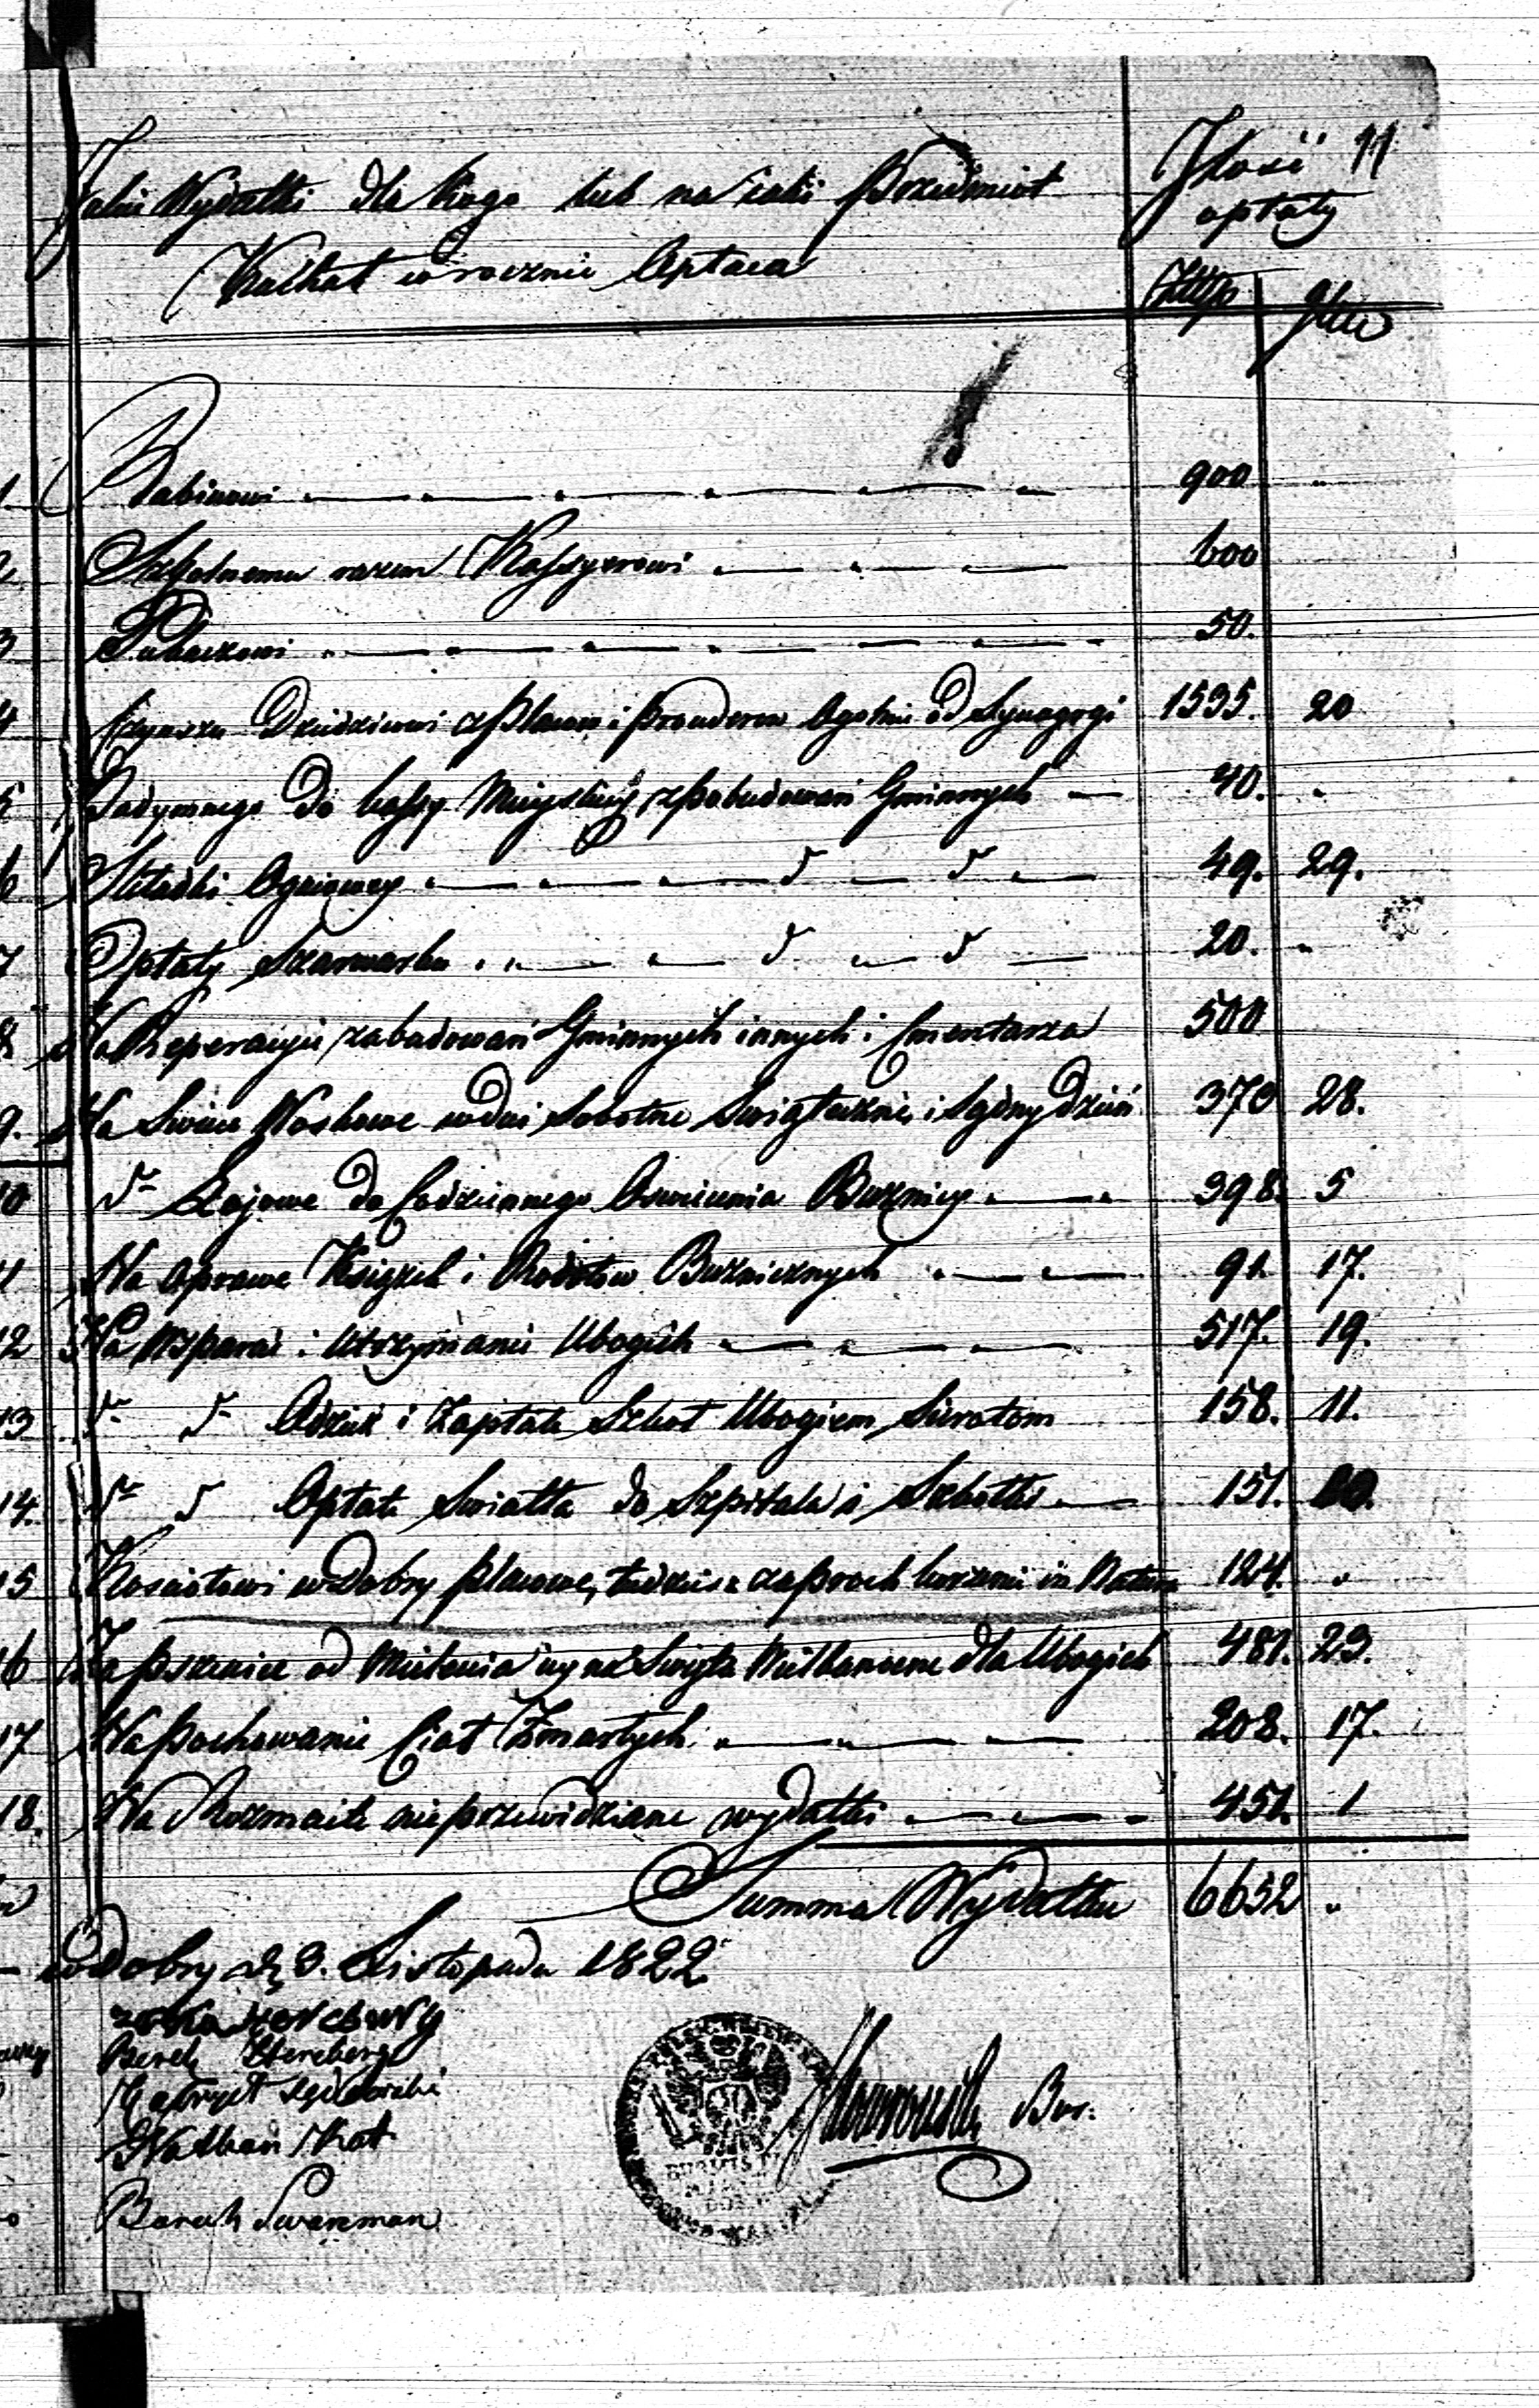 11
Jakie Wydatki dla kogo lub na jakie Przedmiot
Kachał w rocznie Opłaca
Jlość opłaty
Złłp gr
1 Rabinowi 900 "
2 Szkolnemu razem Kassyerowi 600
3 50.
4 Czynszu Dziedzicowi z Placow i Ogolnie od Synagogi 1535. 20
5 Podymnego do kassy Mieyskiey z Pobudowań Gminnych 40. "
6 Składki Ogniowey d d 49. 29.
7 Opłaty Szarwarku d d 20. "
8 Na Reperacyie zabudowań Gminnych innych i Cmentarza 500
9. Na Swiece Woskowe w dni Sobotne Swiąteczne i Sądny dzień 370 28.
10 d° Łojowe do Codziennego Oswiecenia Bużnicy 398. 5
11 Na Oprawe Książek i Rodałow Bużnicznych 91. 17.
12 Na Wsparcie i Utrzymanie Ubogich 517. 19.
13 d° d° Odzież i Zapłate Szkoł Ubogiem Sierotom 158. 11.
14. d° d Opłate Swiatła do Szpitala i Szkołki 151.
15 Kosciołowi w Dobry placowe, tudzież za proch korzenie in Natura 124. "
16 Za pszenice od Mielenia iey na Swięta Wielkanocne dla Ubogich 481. 23.
17 Na Pochowanie Ciał Zmarłych 208. 17.
18. Na Rozmaite nieprzewidziane wydatki 451. 1
Summa Wydatku 6652 "
w Dobry d. 3. Listopada 1822
Berek Sternberg
Gabryel
Nathan Kot
Baruch Swarcman
Bur.